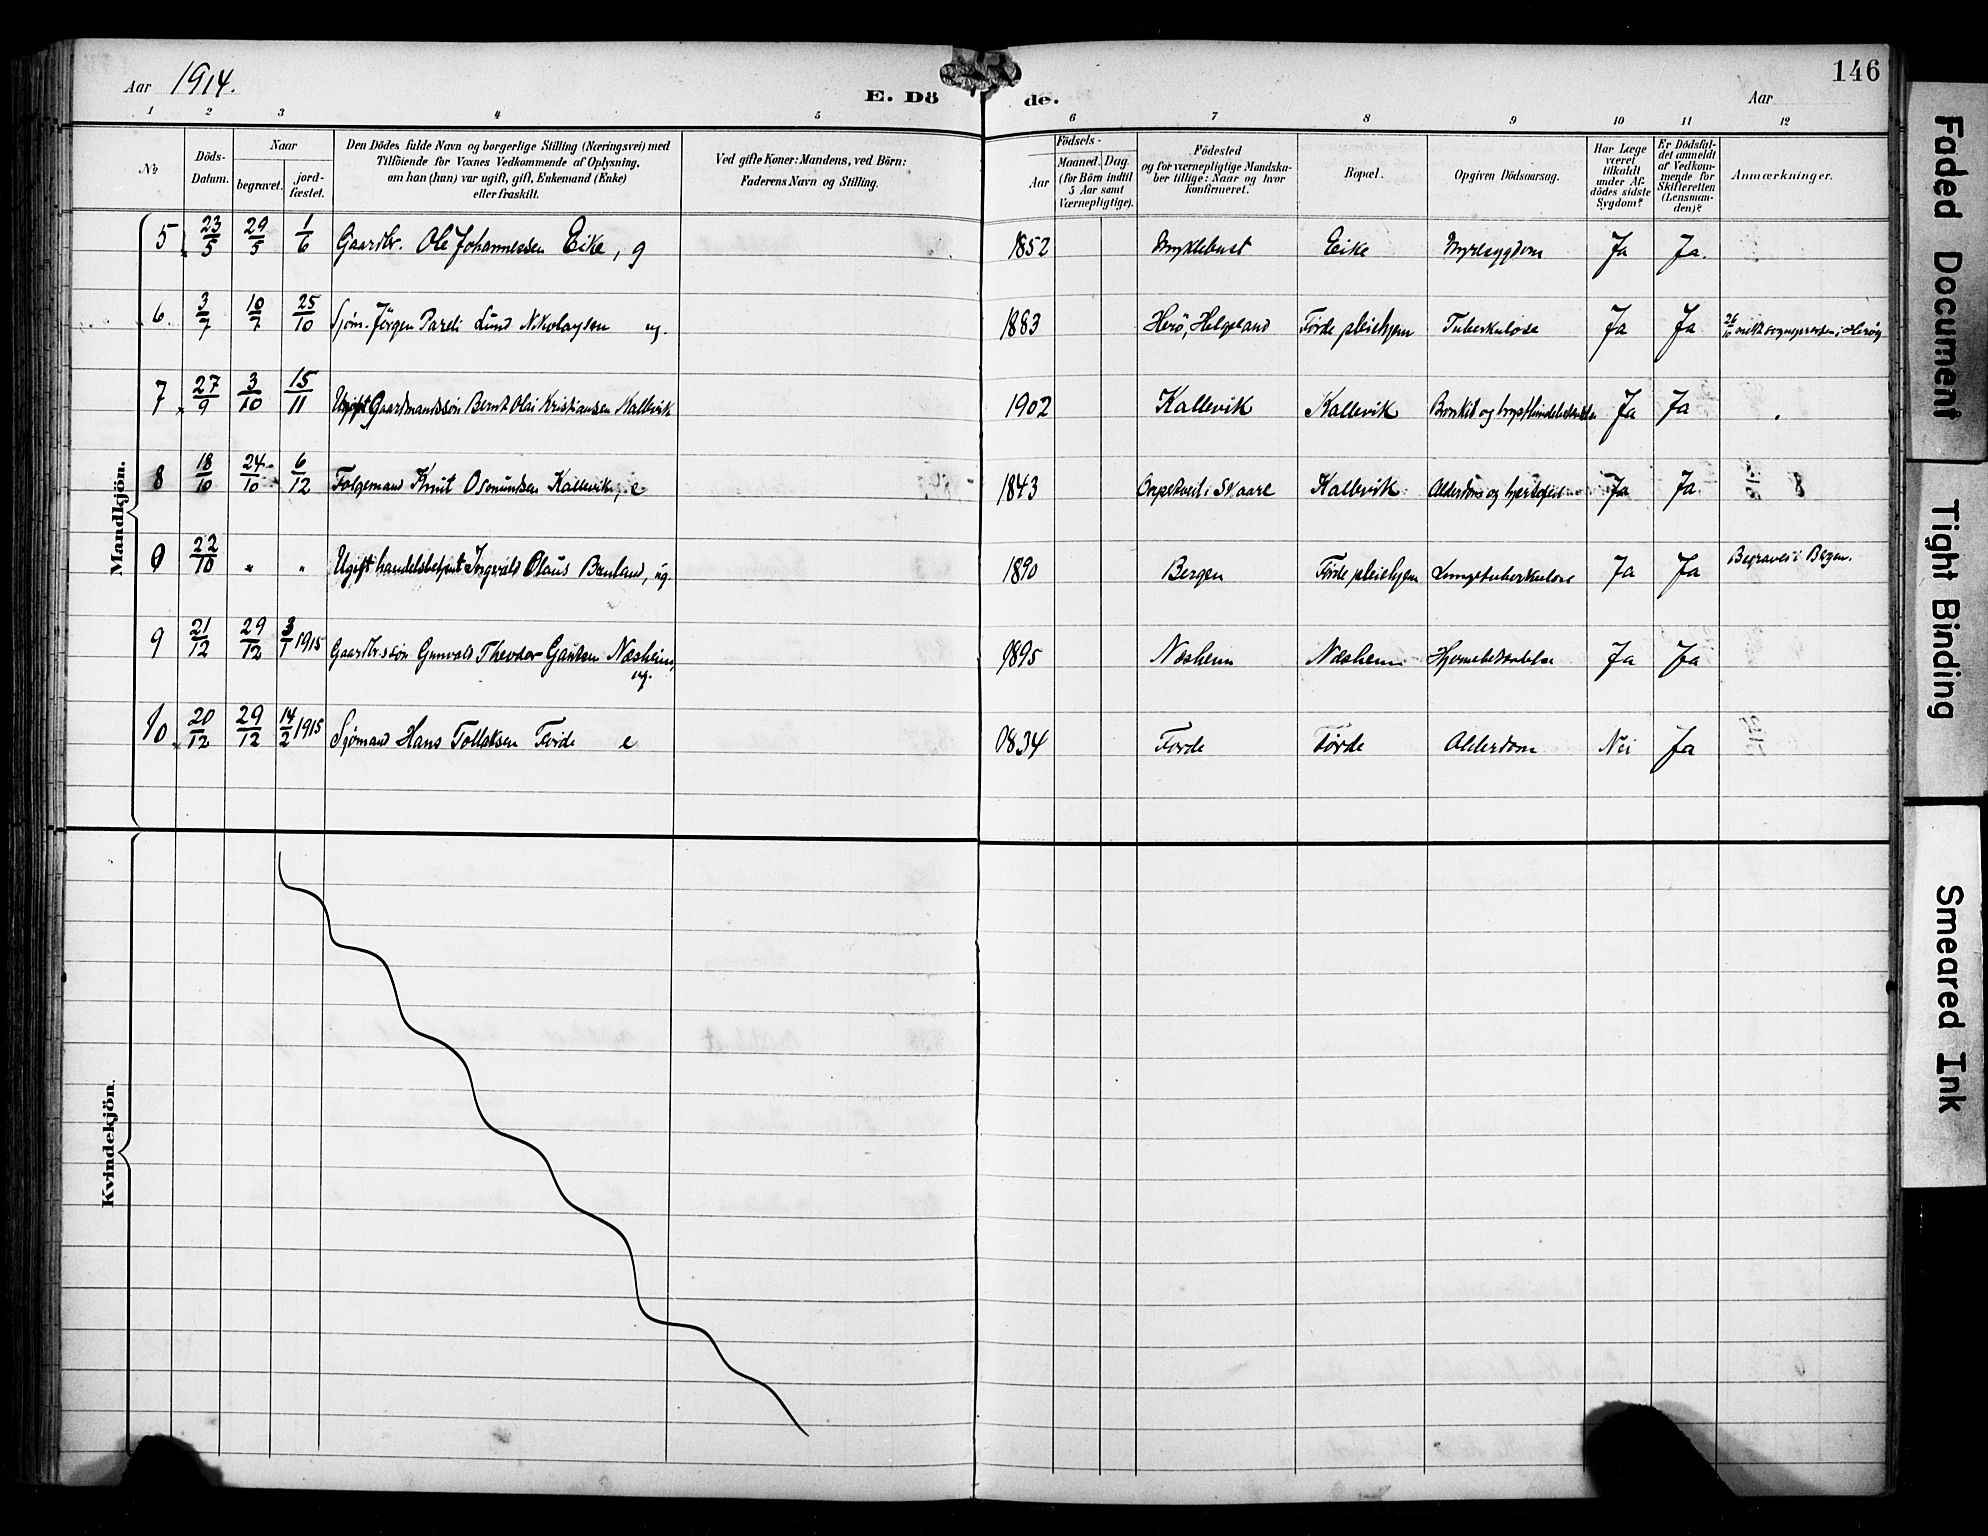 Aar 1914.
E. Dö de.
Aar
146
1 2 3 4 5 6 7 8 9 10 11 12
No
Döds-Datum.
Naar
begravet.
jord-fæstet.
Den Dödes fulde Navn og borgerlige Stilling (Næringsvei) med
Tilföiende for Voxnes Vedkommende af Oplysning,
om han (hun) var ugift, gift, Enkemand (Enke)
eller fraskilt.
Ved gifte Koner: Mandens, ved Börn:
Faderens Navn og Stilling.
Födsels-
Aar
Maaned. Dag.
(for Börn indtil
5 Aar samt
Værnepligtige).
Födested
og for værnepligtige Mandska-
ber tillige: Naar og hvor
konfirmeret.
Bopæl.
Opgiven Dödsaarsag.
Har Læge
været
tilkaldt
under Af-
dödes sidste
Sygdom?
Er Dödsfal-
det anmeldt
af Vedkom-
mende for
Skifteretten
(Lensman-
den)?
Anmærkninger.
Mandkjön.
5 23/5 29/5 1/6 Gaardbr. Ole Johannessen Eike, g 1852 Myklebust Eike Nyresygdom Ja Ja.
6. 3/7 10/7 25/10 Sjøm. Jörgen Pareli Lund Nikolaysen ug. 1883 Herö, Helgeland Førde pleiehjem Tuberkulose Ja Ja 26/10
7 27/9 3/10 15/11 Ugift Gaardmandssön Bernt Olai Kristiansen Kallevik 1902 Kallevik Kallevik Bronkit og Ja Ja
8 18/10 24/10 6/12 Folgemand Knut Osmundsen Kallevik, e 1843 i Skaare Kallevik Alderdom og hjertefeil Ja Ja 8
9 22/10 " " Ugift handelsbetjent Ingvald Olaus ug. 1890 Bergen Førde pleiehjem Lungetuberkulose Ja Ja Begraves i Bergen.
9 21/12 29/12 3/1 1915 Gaardbr.ssøn Gunvald Theodor Gautsen Næsheim, 1895 Næsheim Næsheim Hjernebetændelse Ja Ja
ug.
10 20/12 29/12 14/2 1915 Sjømand Hans Tollaksen Førde e 1834 Førde Førde Alderdom Nei Ja
Kvindekjön.
Faded Document
Tight Binding
Smeared Ink